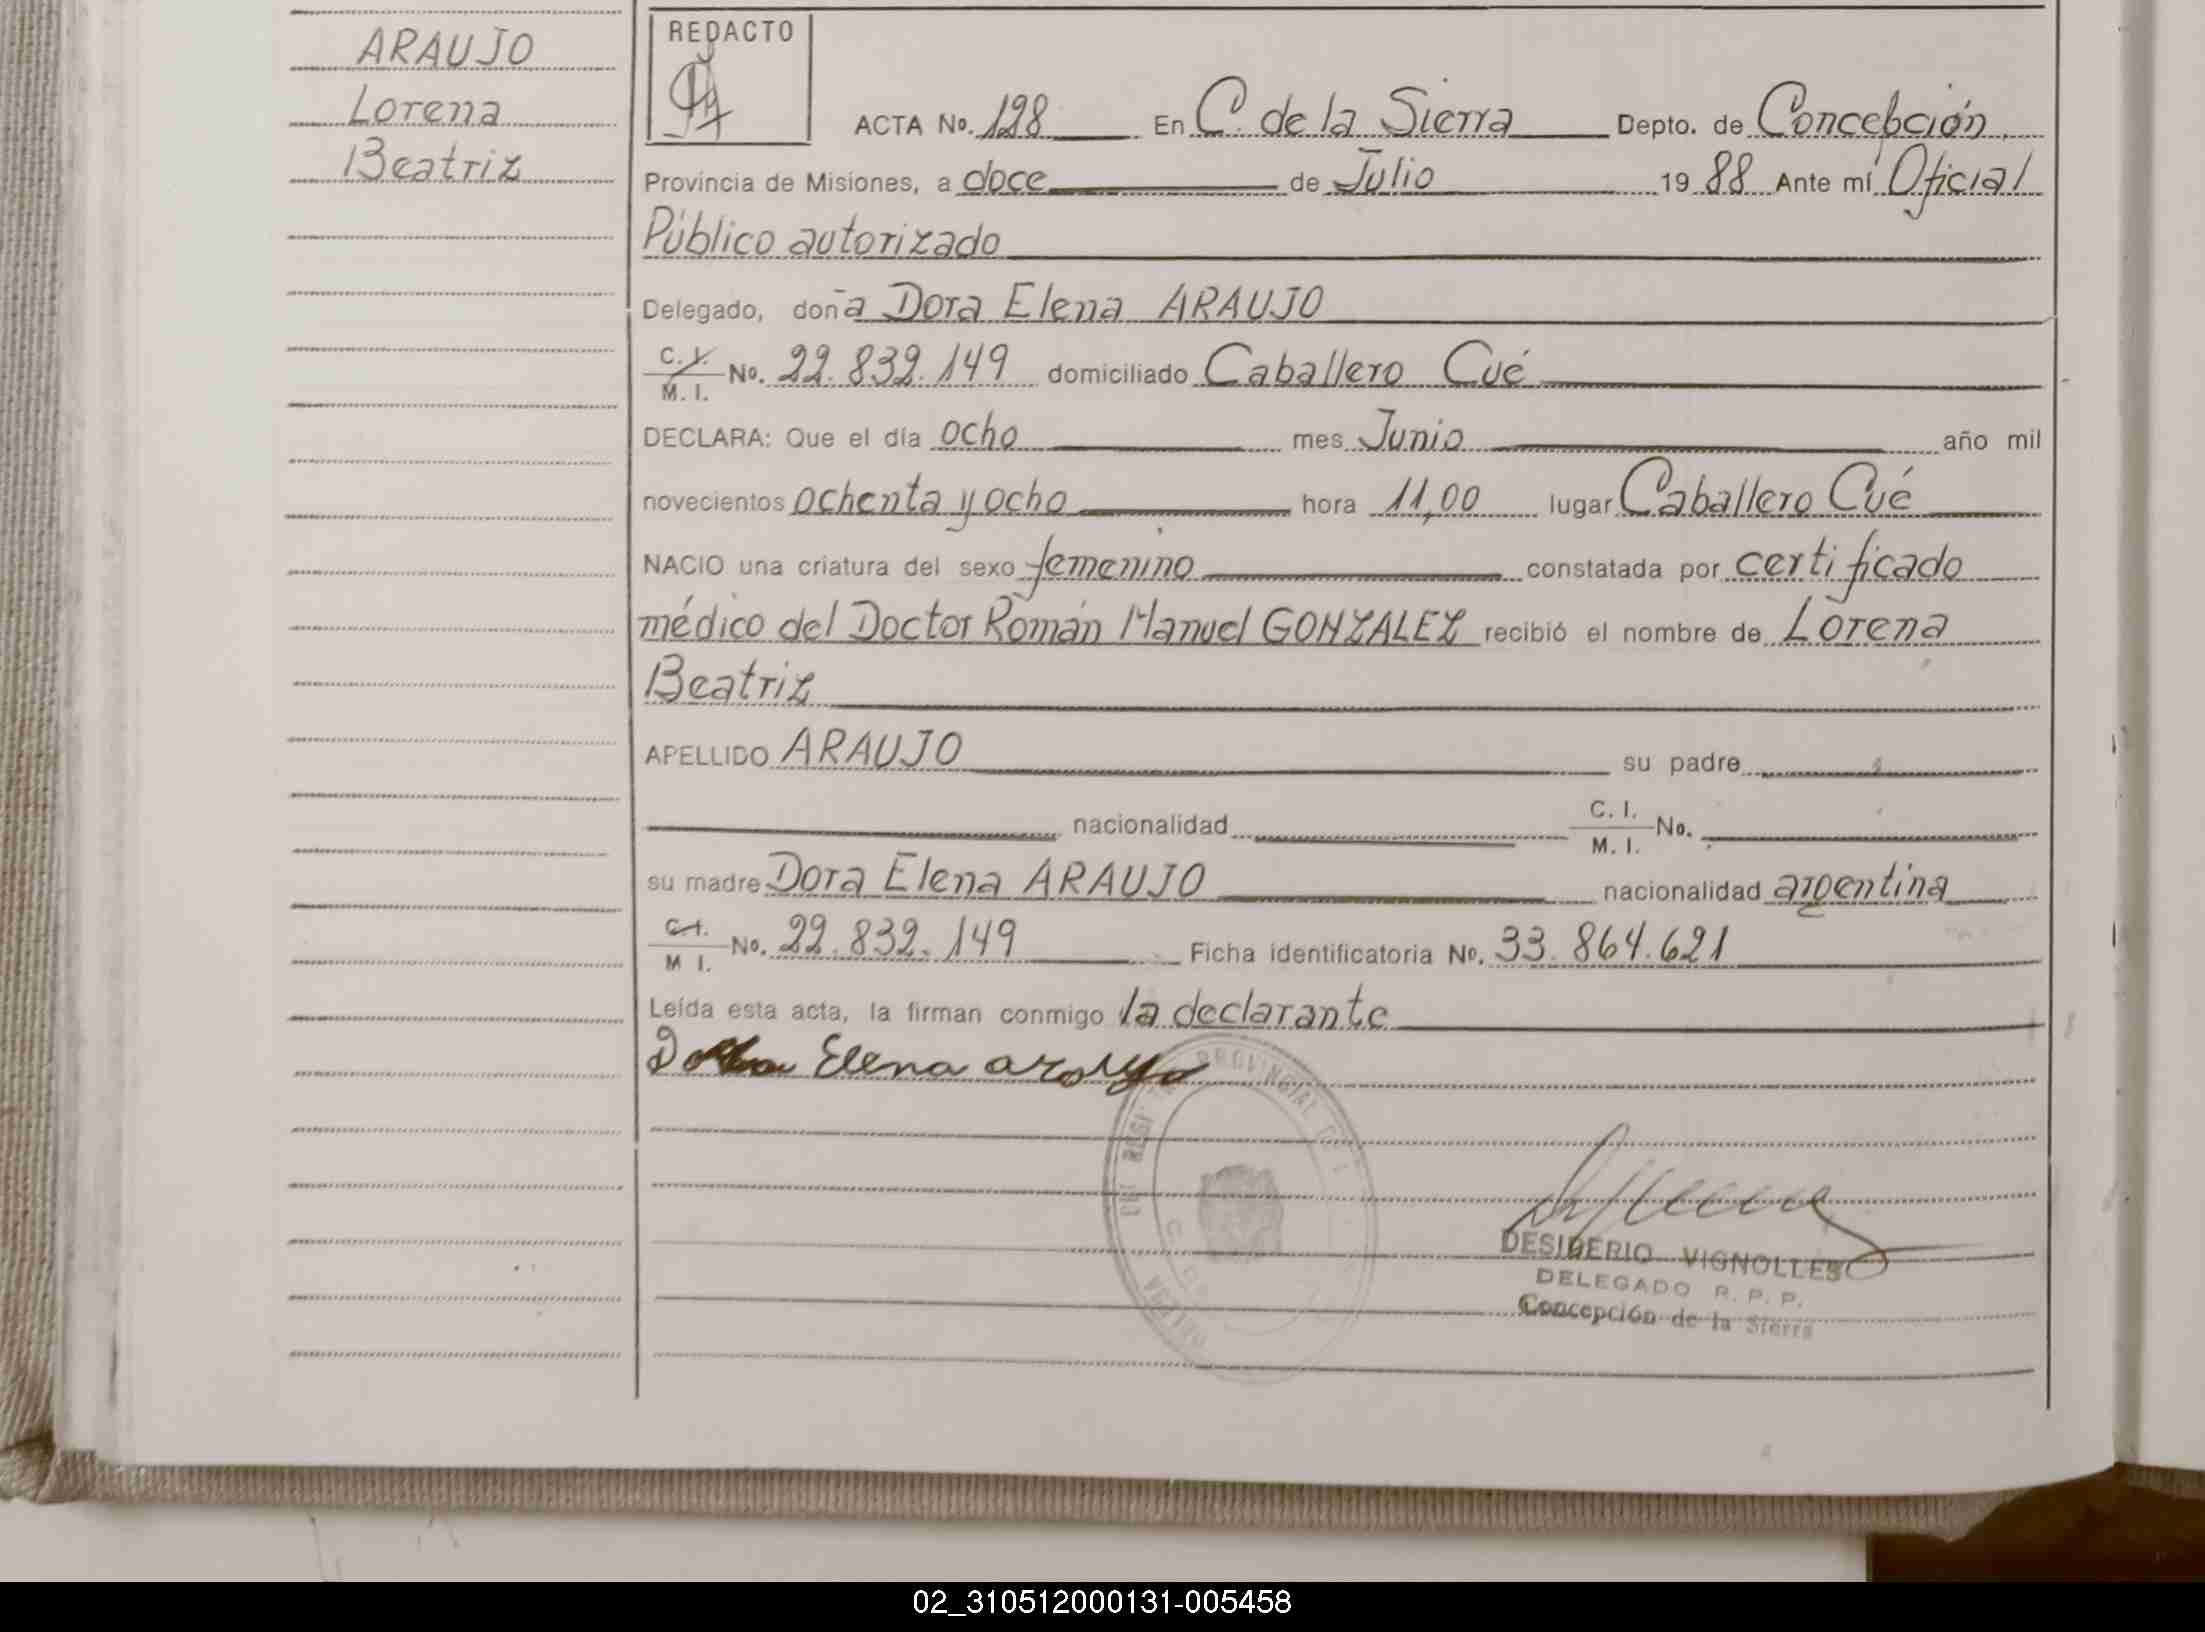 ARAUJO
Lorena
Beatriz
REDACTO
ACTA No. 128 En C. de la Sierra Depto. de Concepción
Provincia de Misiones, a doce de Julio 19 88 Ante mí Oficial
Público autorizado
Delegado, doña Dora Elena ARAUJO
C. I. / M. I. No. 22.832.149 domiciliado Caballero Cué
DECLARA: Que el día ocho mes Junio año mil
novecientos ochenta y ocho hora 11,00 lugar Caballero Cué
NACIO una criatura del sexo femenino constatada por certificado
médico del Doctor Román Manuel GONZALEZ recibió el nombre de Lorena
Beatriz
APELLIDO ARAUJO su padre
nacionalidad C. I. / M. I. No.
su madre Dora Elena ARAUJO nacionalidad argentina
C. I. / M I. No. 22.832.149 Ficha identificatoria No. 33.864.621
Leída esta acta, la firman conmigo la declarante
Dora Elena araujo
PROVINCIAL
DESIDERIO VIGNOLLES
DELEGADO R. P. P.
Concepción de la Sierra
02_310512000131-005458